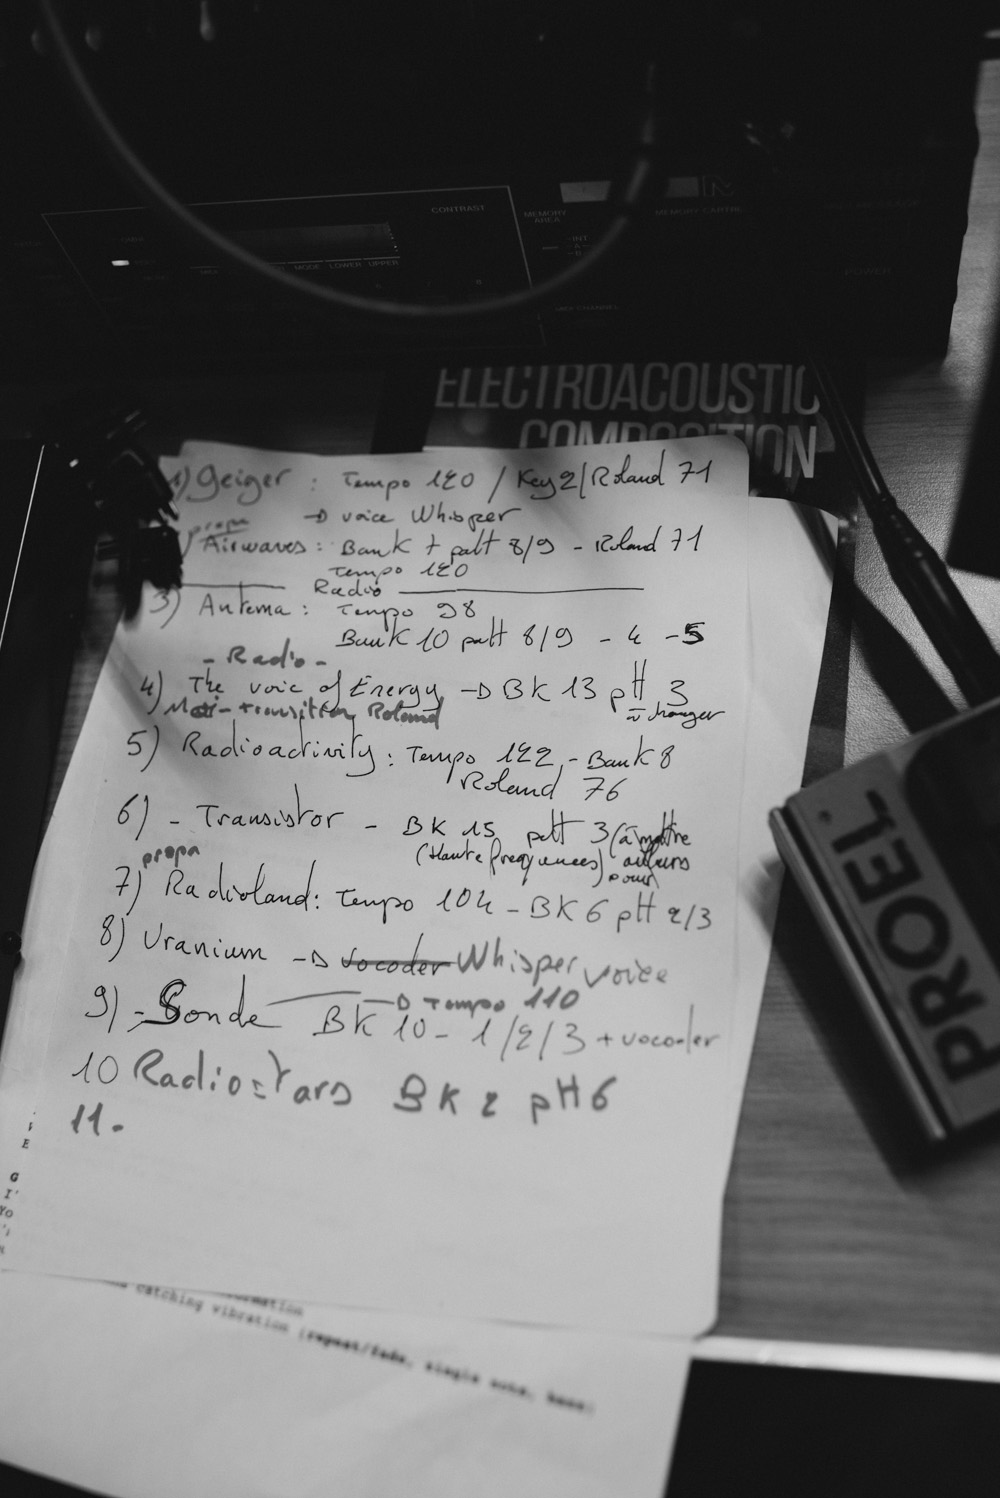 CONTRAST
MEMORY AREA
INT
A
B
MODE LOWER UPPER
POWER
ELECTROACOUSTIC
COMPOSITION
1) Geiger : Tempo 120 / Key 2 / Roland 71
→ voice Whisper
propa
Airwaves : Bank 7 patt 8/9 - Roland 71
Tempo 120
Radio
3) Antenna : Tempo 98
Bank 10 patt 8/9 - 4 - 5
- Radio -
4) The voice of Energy → BK 13 pH 3
transition Roland
à changer
5) Radioactivity : Tempo 122 - Bank 8
Roland 76
6) - Transistor - BK 15 patt 3 (à mettre
(Haute fréquences) ailleurs
pour
propa
7) Radioland : Tempo 104 - BK 6 pH 2/3
8) Uranium → vocoder Whisper voice
9) - Sonde → Tempo 110
BK 10 - 1/2/3 + vocoder
10 Radio stars BK 2 pH 6
11.
E
G
I'
YO
catching vibration (repeat/fade, single note, bass)
PROEL.